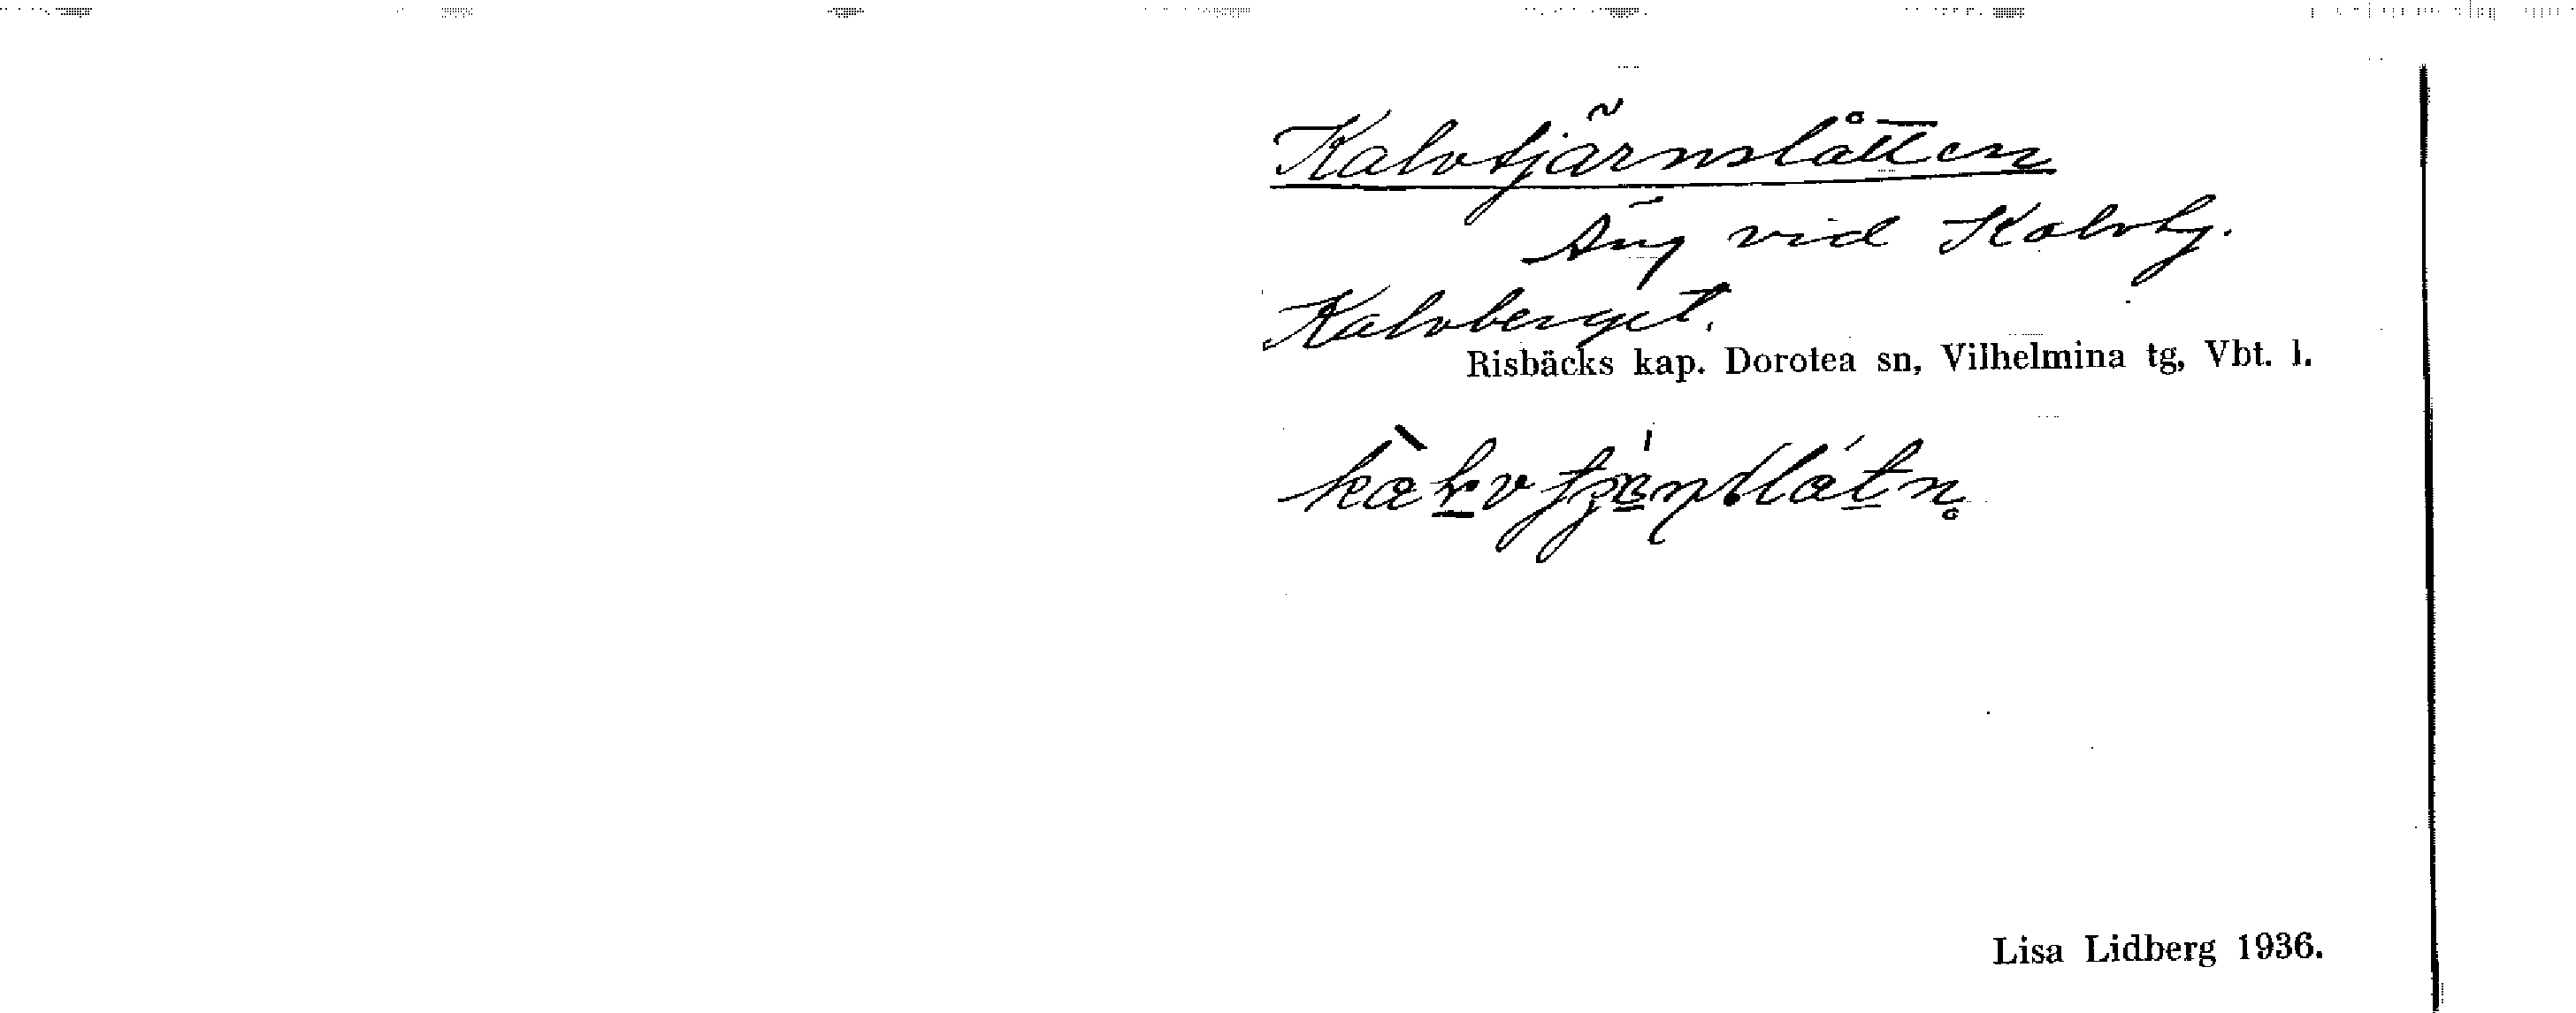 Kalvtjärnslåtten
Äng vid Kalvtj.
Kalvberget.
Risbäcks kap. Dorotea sn, Vilhelmina tg, Vbt. l.
Lisa Lidberg 1936.